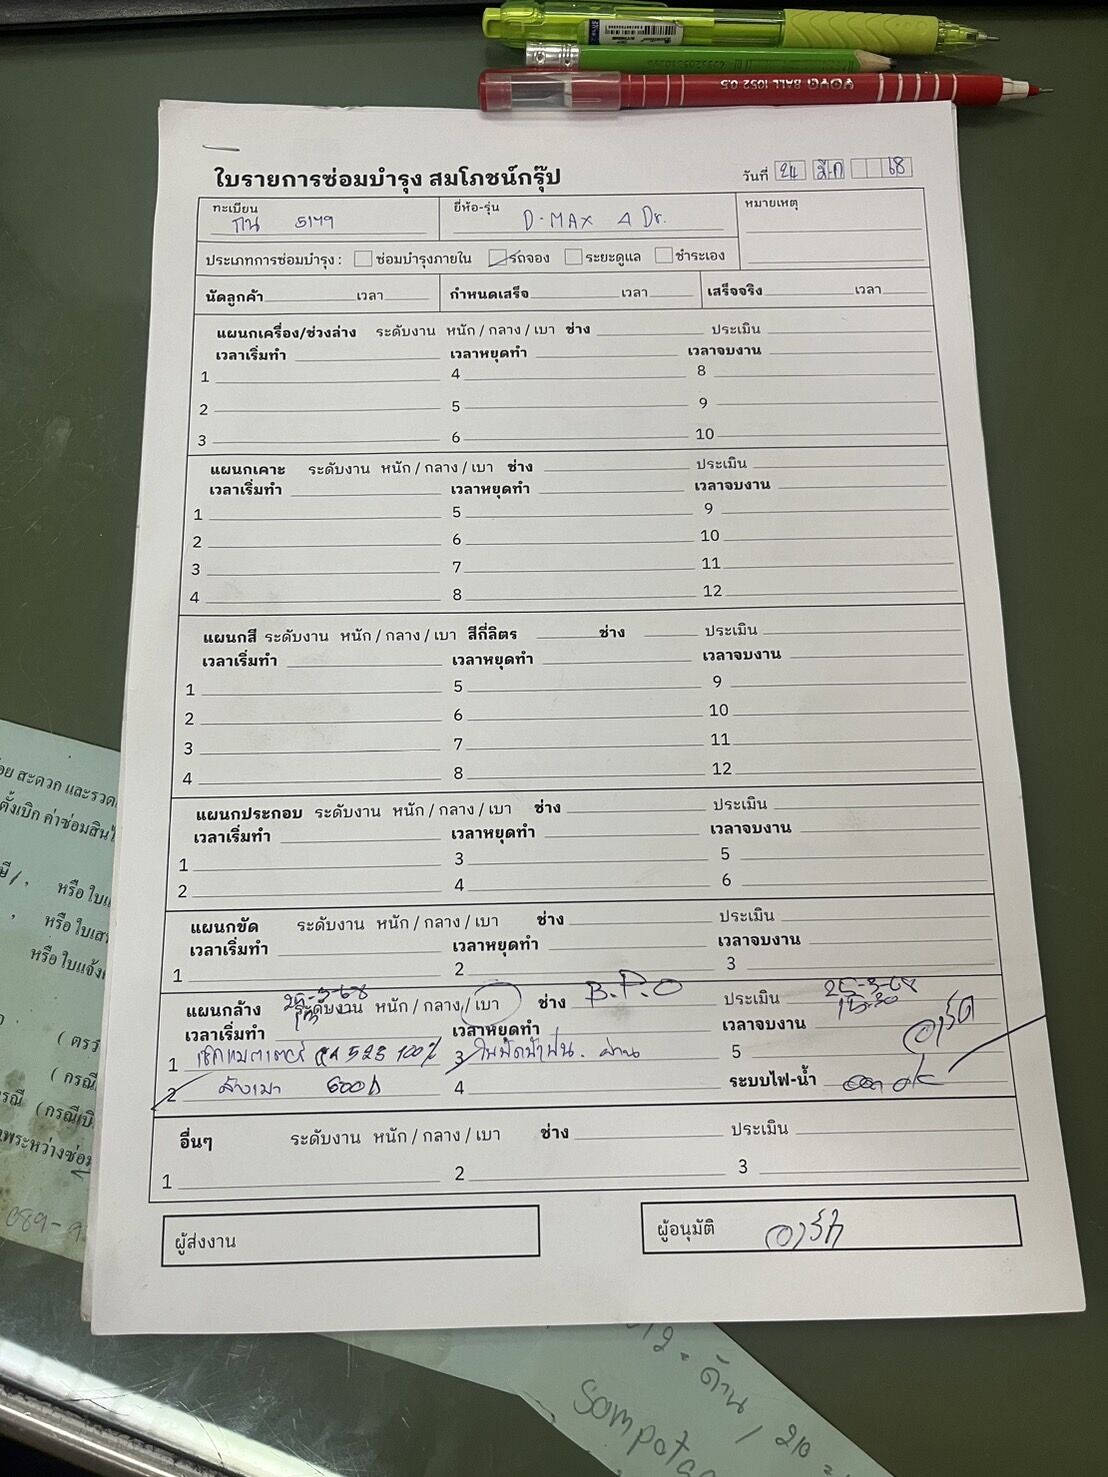 YOYA BALL 1052 0.5
ใบรายการซ่อมบำรุง สมโภชน์กรุ๊ป
วันที่ 24 มี.ค 68
ทะเบียน กน 5149
ยี่ห้อ-รุ่น D-MAX 4 Dr.
หมายเหตุ
ประเภทการซ่อมบำรุง : ซ่อมบำรุงภายใน รถจอง ระยะดูแล ชำระเอง
นัดลูกค้า เวลา กำหนดเสร็จ เวลา เสร็จจริง เวลา
แผนกเครื่อง/ช่วงล่าง ระดับงาน หนัก / กลาง / เบา ช่าง ประเมิน
เวลาเริ่มทำ เวลาหยุดทำ เวลาจบงาน
1 4 8
2 5 9
3 6 10
แผนกเคาะ ระดับงาน หนัก / กลาง / เบา ช่าง ประเมิน
เวลาเริ่มทำ เวลาหยุดทำ เวลาจบงาน
1 5 9
2 6 10
3 7 11
4 8 12
แผนกสี ระดับงาน หนัก / กลาง / เบา สีกี่ลิตร ช่าง ประเมิน
เวลาเริ่มทำ เวลาหยุดทำ เวลาจบงาน
1 5 9
2 6 10
3 7 11
4 8 12
แผนกประกอบ ระดับงาน หนัก / กลาง / เบา ช่าง ประเมิน
เวลาเริ่มทำ เวลาหยุดทำ เวลาจบงาน
1 3 5
2 4 6
แผนกขัด ระดับงาน หนัก / กลาง / เบา ช่าง ประเมิน
เวลาเริ่มทำ เวลาหยุดทำ เวลาจบงาน
1 2 3
แผนกล้าง ระดับงาน หนัก / กลาง / เบา ช่าง B.P.O ประเมิน 25-3-68
25-3-68
เวลาเริ่มทำ เวลาหยุดทำ เวลาจบงาน 15.30
1 เช็กแบตเตอรี่ 523 100% 3 ใบปัดน้ำฝน. ผ่าน 5
2 ล้างเบา 600 4 ระบบไฟ-น้ำ ok
อื่นๆ ระดับงาน หนัก / กลาง / เบา ช่าง ประเมิน
1 2 3
ผู้ส่งงาน
ผู้อนุมัติ
สะดวก และรวด
ตั้งเบิก ค่าซ่อมสิน
หรือ
หรือ ใบเส
หรือ ใบแจ้ง
( ตรว
( กรณี
(กรณีเบิ
พระหว่างซ่อม
089-9
Sompo